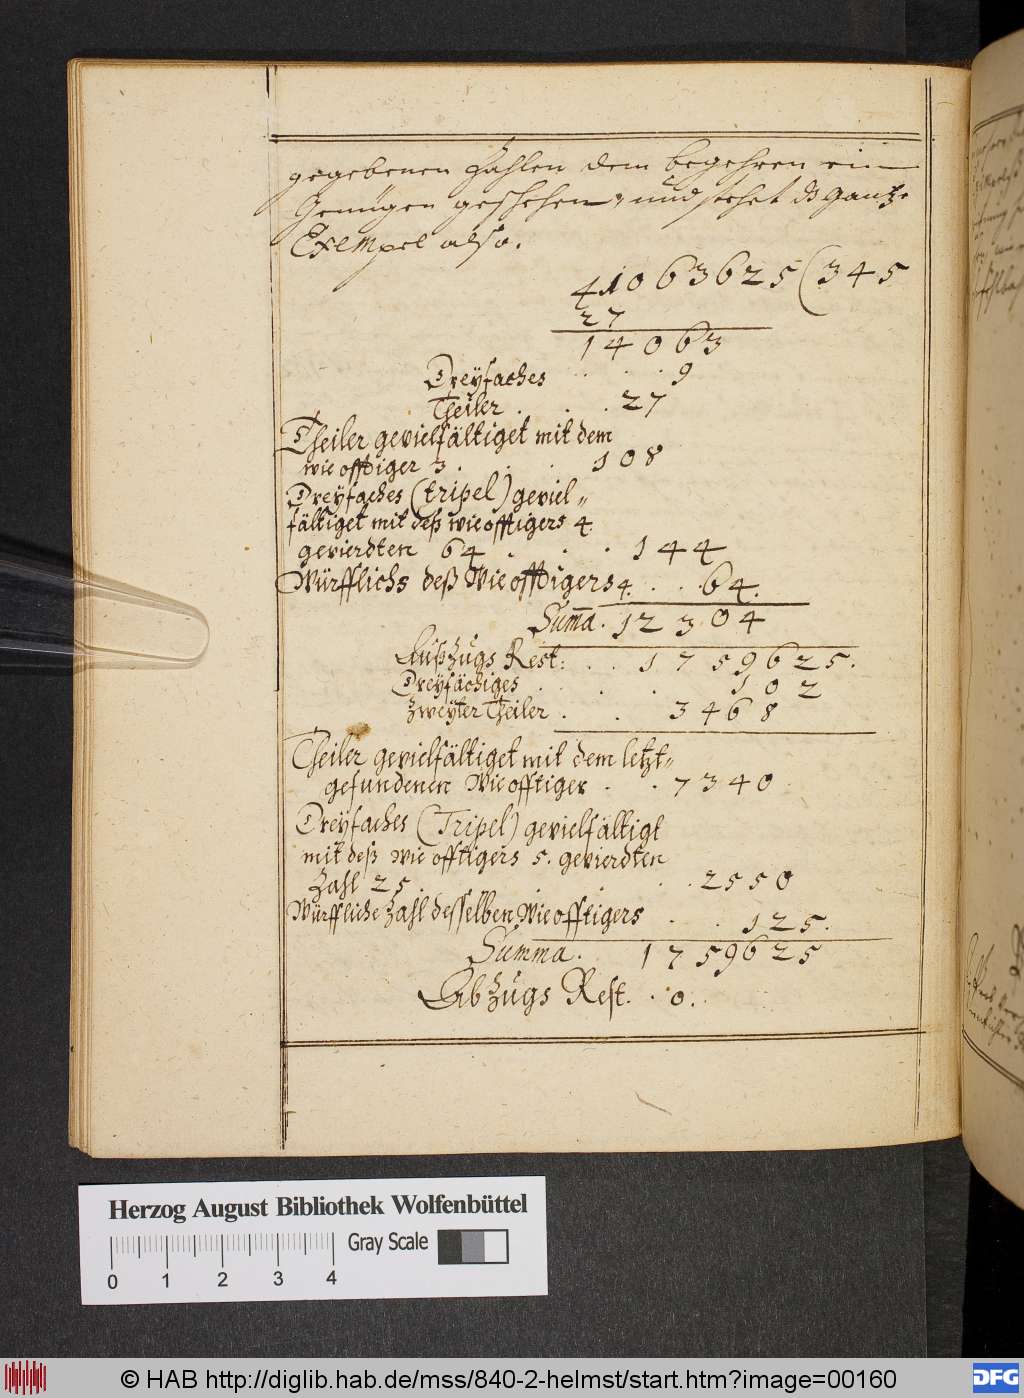 gegebenen Zahlen dem begehren ein
Genügen geschehen, und stehet ds gantze
Exempel also.
41063625(345
27
14063
Dreÿfaches . . . . 9
Theiler . . . 27
Theiler gevielfältiget mit dem
wie offtiger 3 . . . 108
Dreÿfaches (tripel) geviel„
fältiget mit deß wie offtigers 4.
gevierdten 64 . . . 144
Würfflichs deß Wie offtigers 4. . . 64.
Suma. 12304
Außzugs Rest: . . 1759625.
Dreÿfächiges . . . 102
Zweÿter Theiler . . 3468
Theiler gevielfältiget mit dem letzt„
gefundenen Wie offtiger . . 7340
Dreÿfaches (Tripel) gevielfältigt
mit deß wie offtigers 5. gevierdten
Zahl 25. . . . . 2550
Würffliche Zahl desselben Wie offtigers . . 125.
Summa. 1759625
Abzugs Rest. . 0.
Herzog August Bibliothek Wolfenbüttel
Gray Scale
0 1 2 3 4
© HAB http://diglib.hab.de/mss/840-2-helmst/start.htm?image=00160
DFG